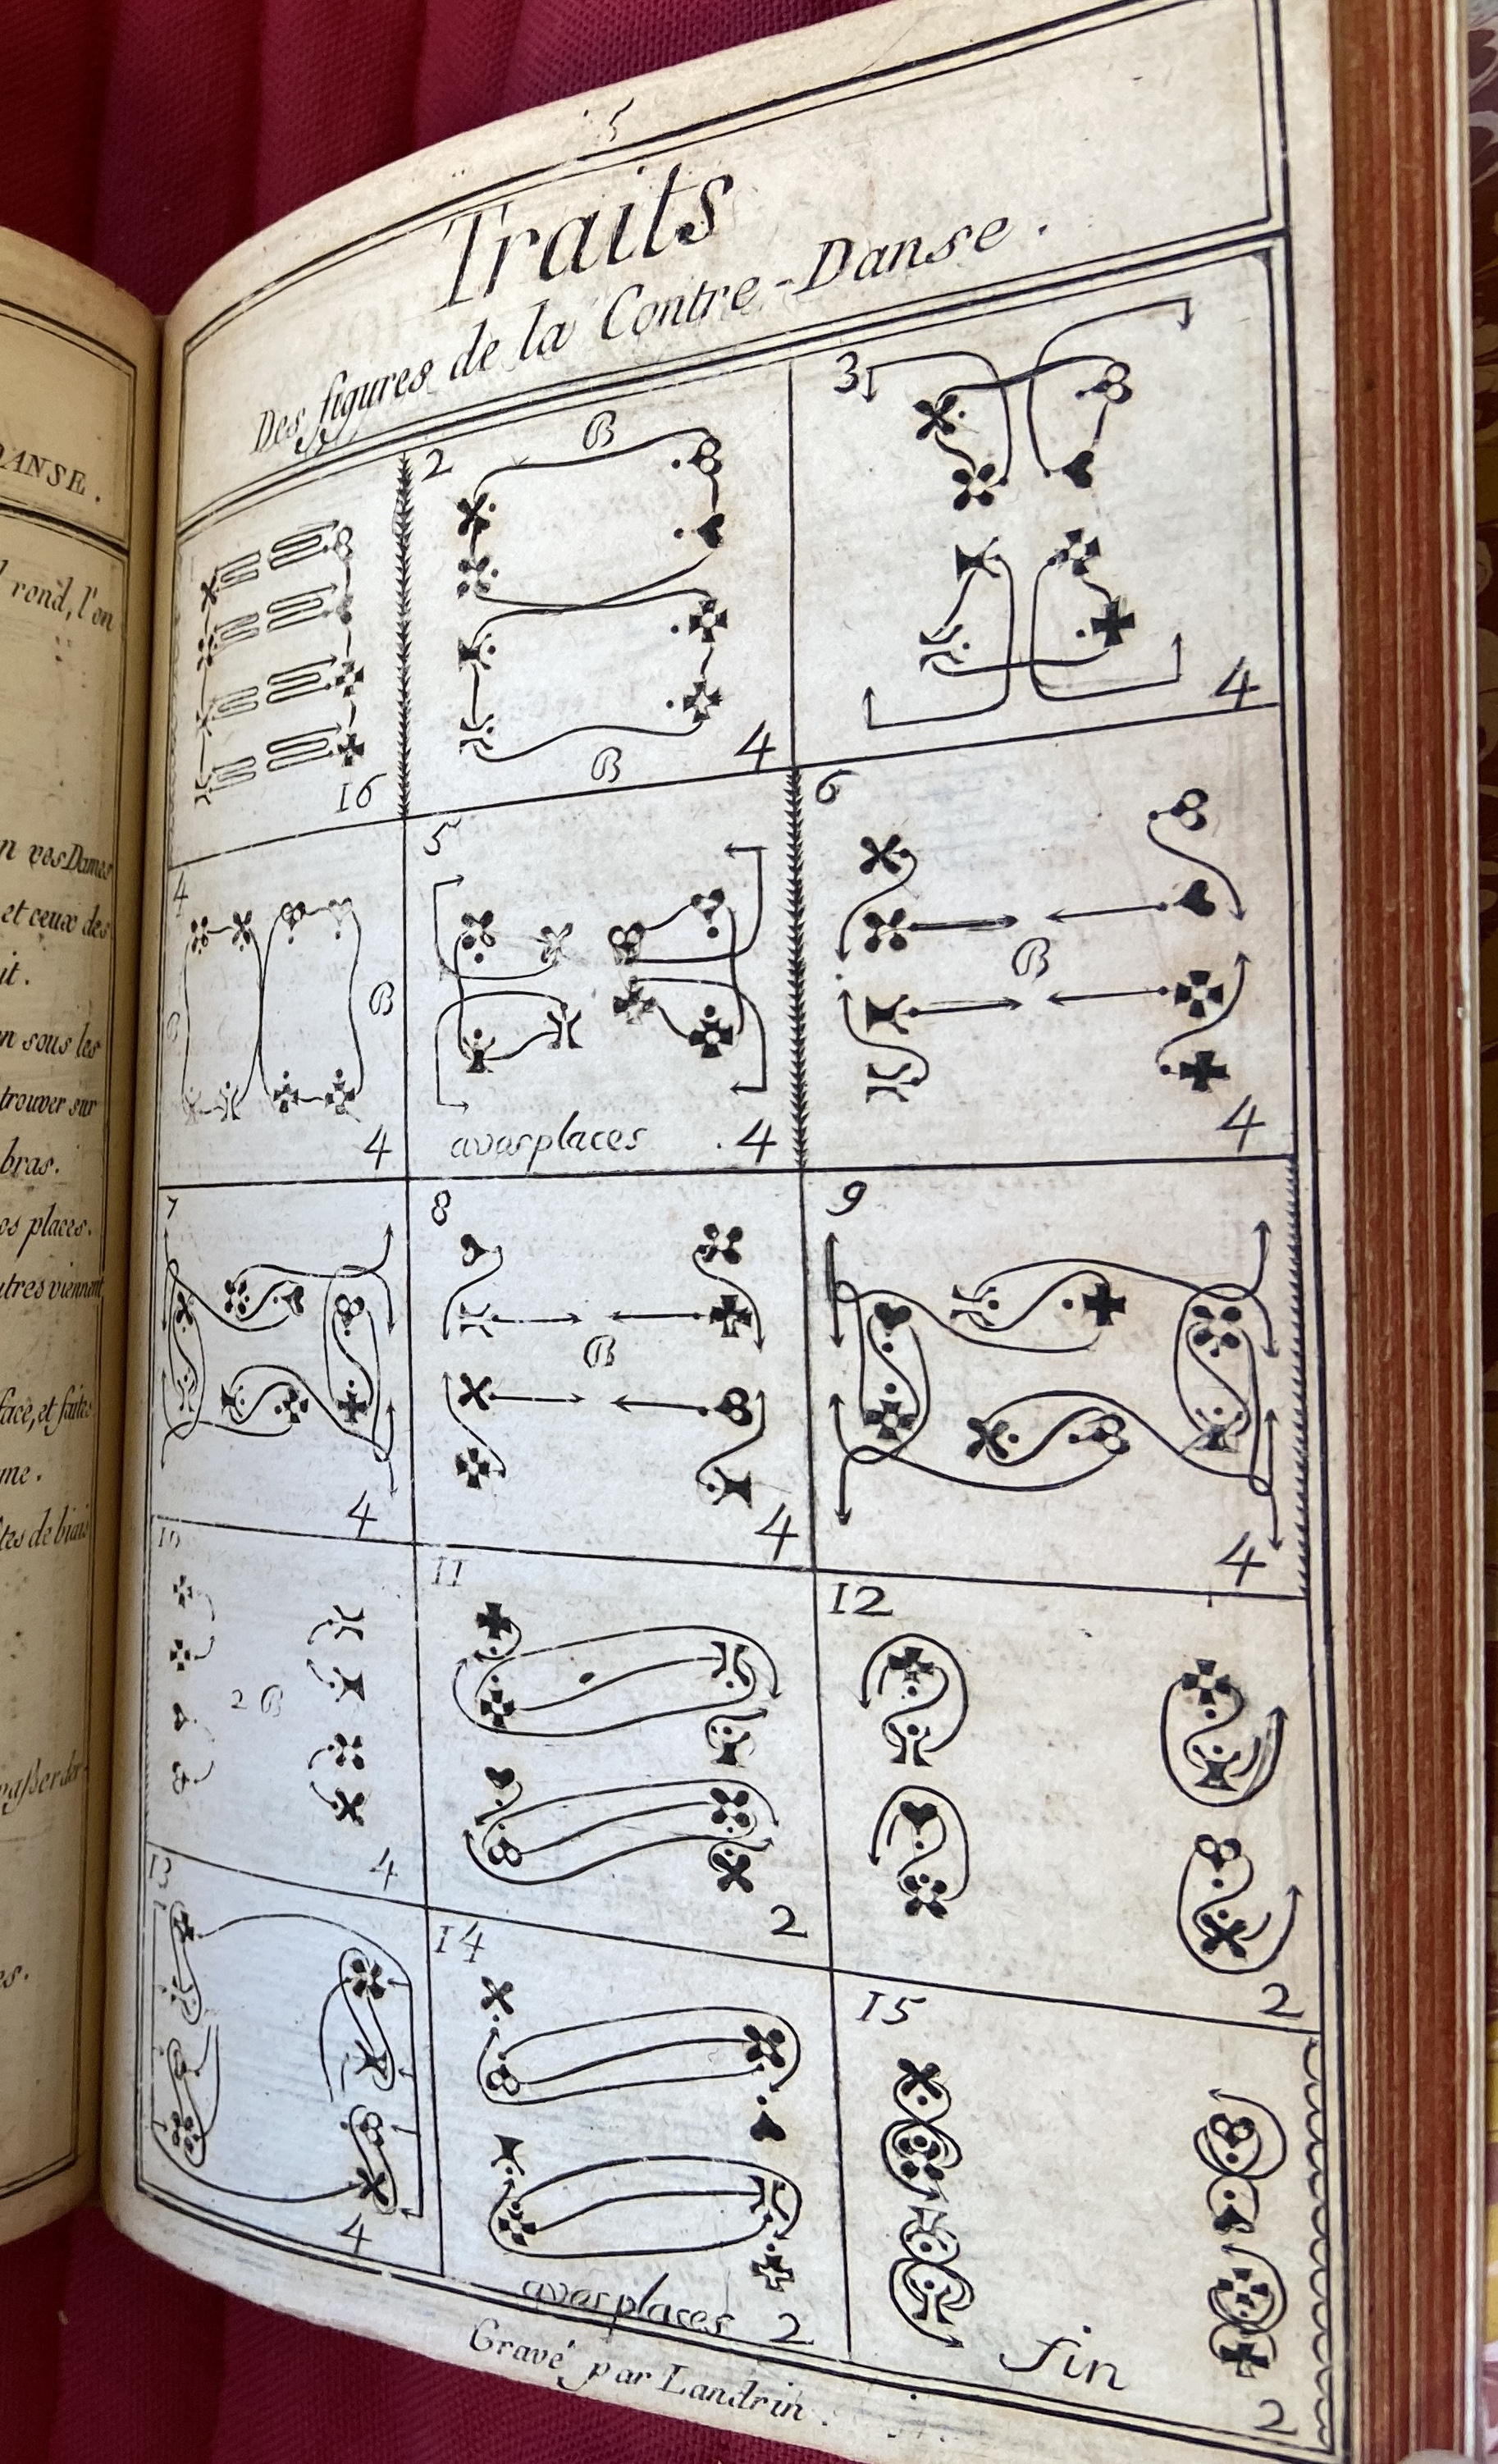 DANSE.
rond, l'on
n vos Dames
et ceux des
it.
n sous les
trouver sur
bras.
os places.
utres viennent
face, et faites
me.
tes de biais
passer der-
es.
5
Traits
Des figures de la Contre-Danse.
16
2
B
B
4
3
4
4
B
B
4
5
avosplaces
4
6
B
4
7
4
8
B
4
9
4
10
2 B
4
11
2
12
2
13
4
14
avosplaces
2
15
fin
2
Gravé par Landrin.